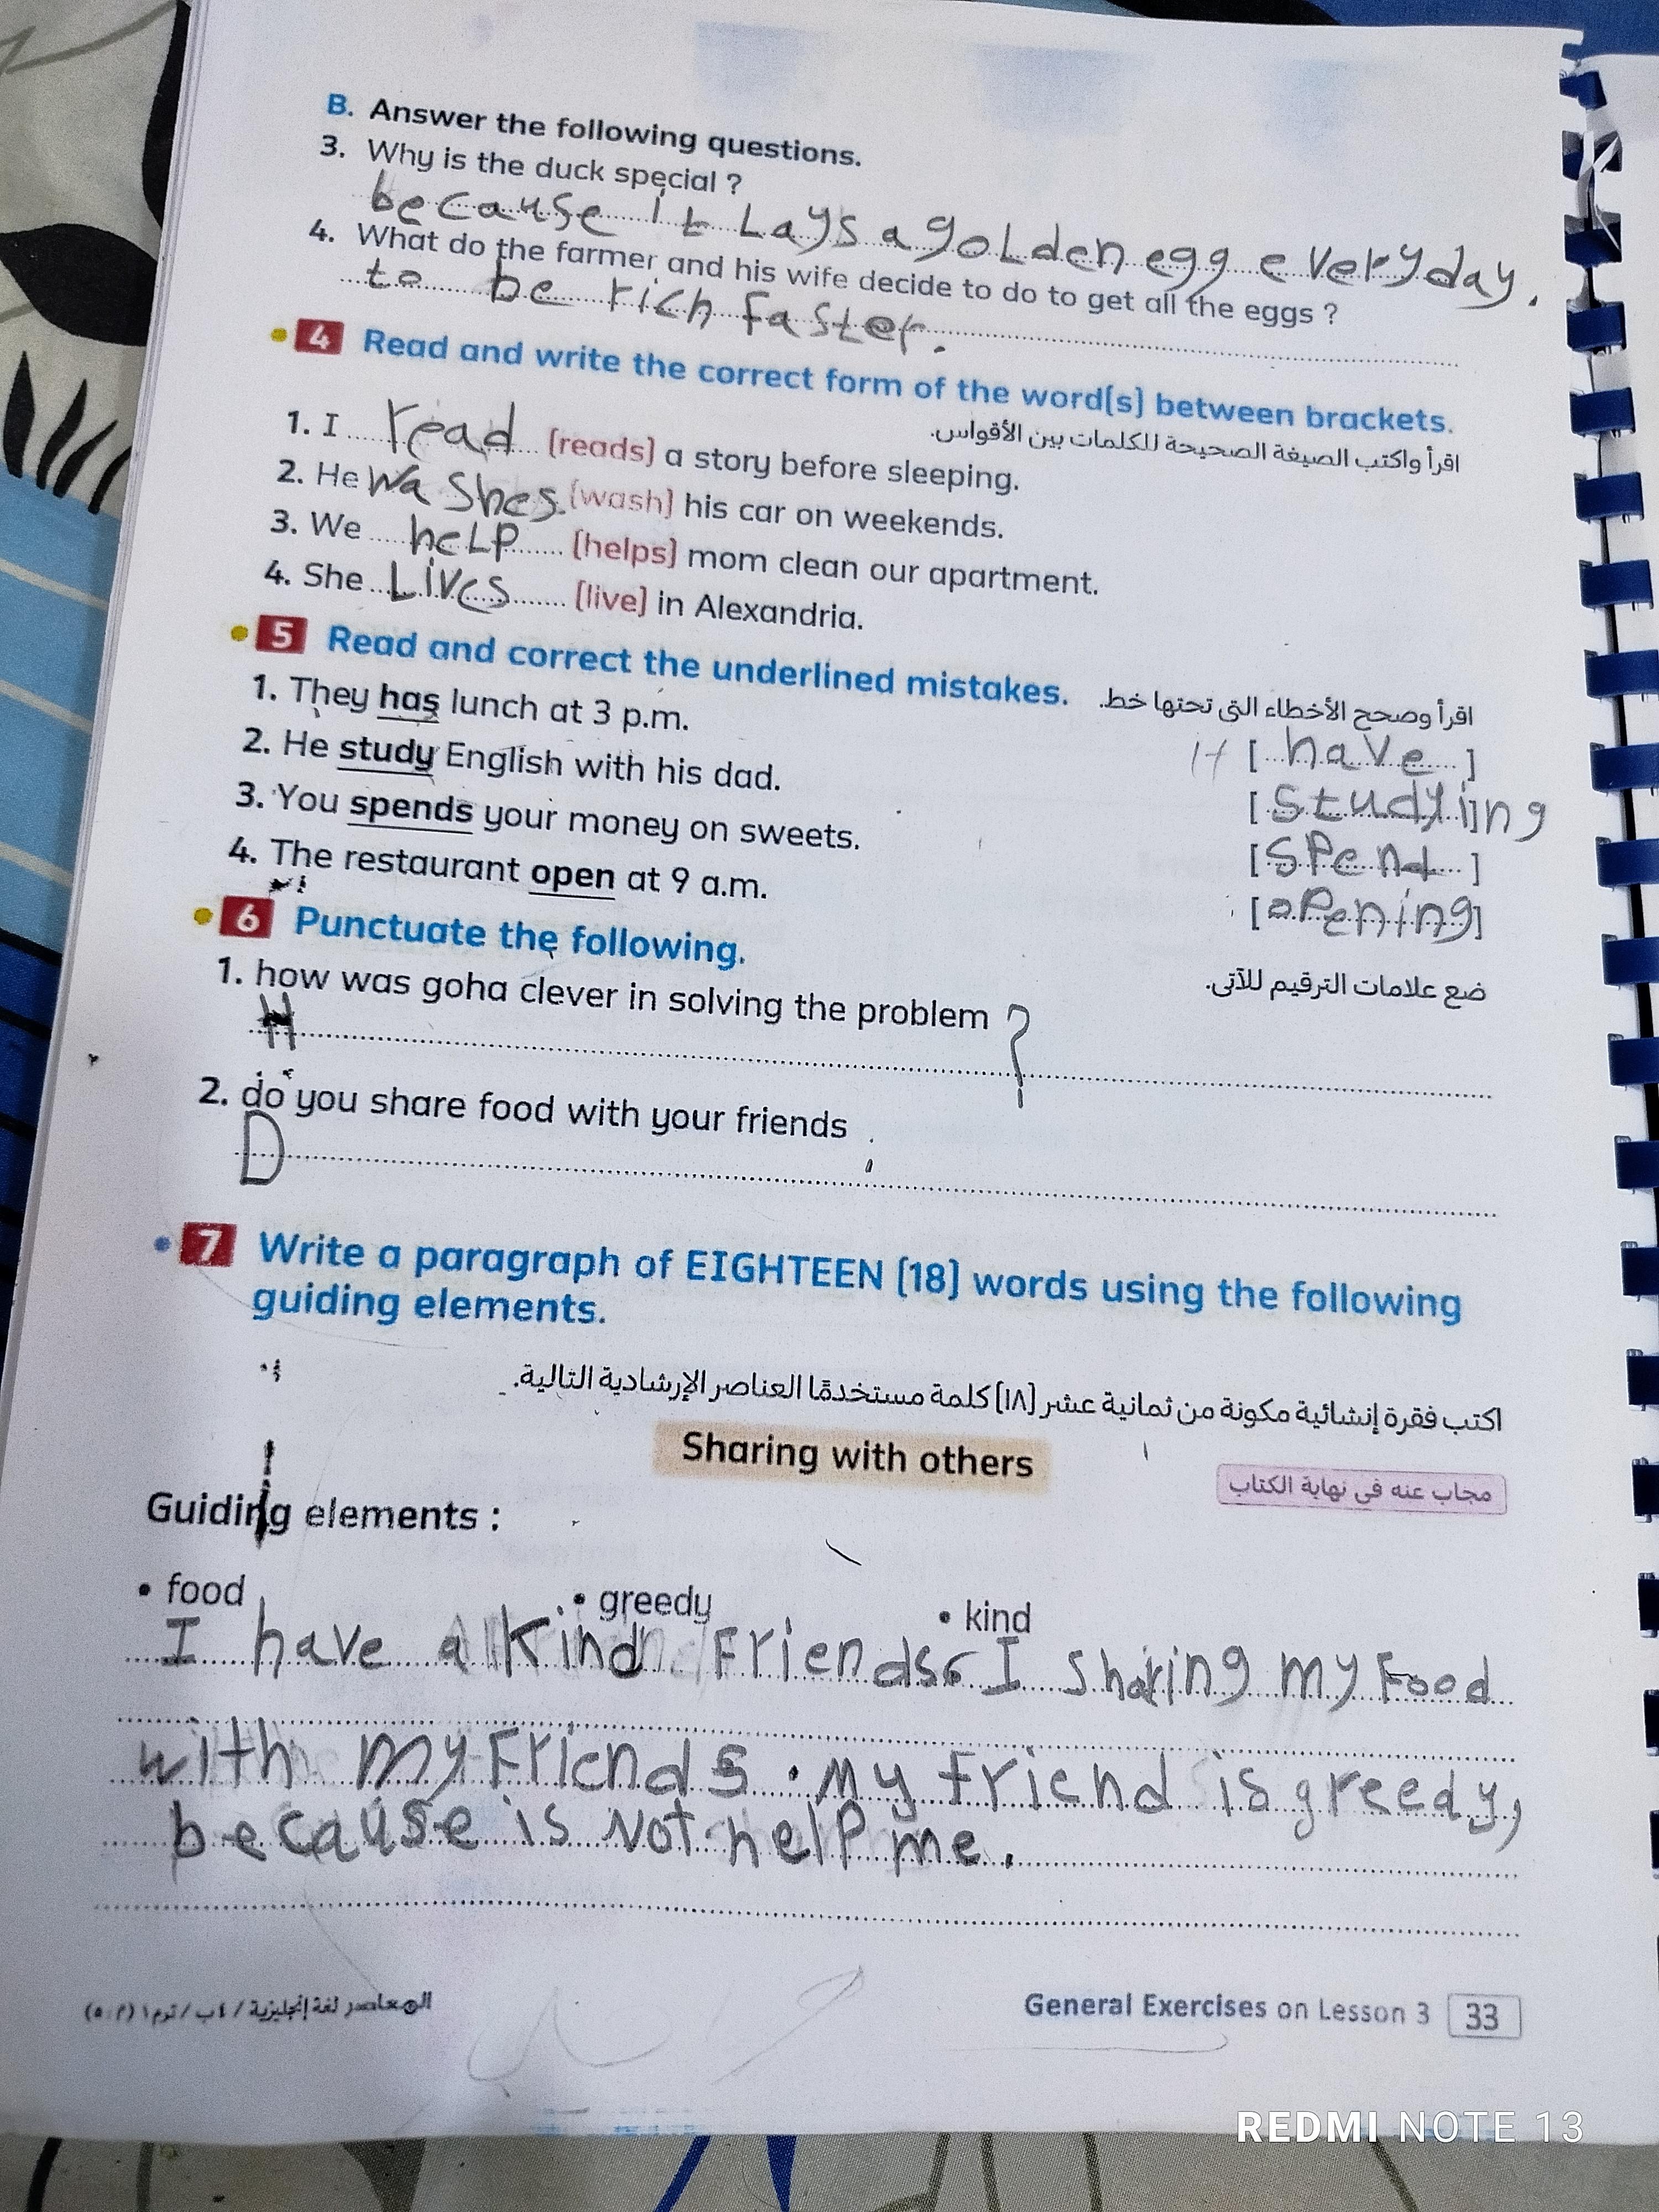 B. Answer the following questions.
3. Why is the duck special ?
because it Lays a goLden egg everyday.
4. What do the farmer and his wife decide to do to get all the eggs ?
to be rich faster.
4 Read and write the correct form of the word(s) between brackets.
اقرأ واكتب الصيغة الصحيحة للكلمات بين الأقواس.
1. I read (reads) a story before sleeping.
2. He washes (wash) his car on weekends.
3. We heLP (helps) mom clean our apartment.
4. She Lives (live) in Alexandria.
5 Read and correct the underlined mistakes. اقرأ وصحح الأخطاء التى تحتها خط.
1. They has lunch at 3 p.m. [ have ]
2. He study English with his dad. [ studying ]
3. You spends your money on sweets. [ SPend ]
4. The restaurant open at 9 a.m. [ oPening ]
6 Punctuate the following. ضع علامات الترقيم للآتى.
1. how was goha clever in solving the problem
H ?
2. do you share food with your friends
D
7 Write a paragraph of EIGHTEEN (18) words using the following
guiding elements.
اكتب فقرة إنشائية مكونة من ثمانية عشر (١٨) كلمة مستخدمًا العناصر الإرشادية التالية.
Sharing with others
مجاب عنه فى نهاية الكتاب
Guiding elements :
• food • greedy • kind
I have a Kind Friends I sharing my Food
with my Friends . My friend is greedy,
because is Not helP me.
المعاصر لغة إنجليزية / ٤ ب / ترم ١ (م : ٥)
General Exercises on Lesson 3 33
REDMI NOTE 13